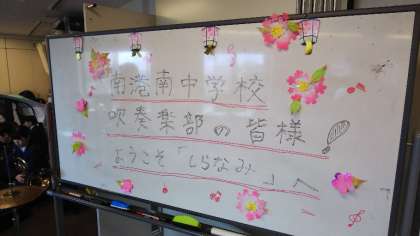 南港南中学校
吹奏楽部の皆様
ようこそ「しらなみ」へ